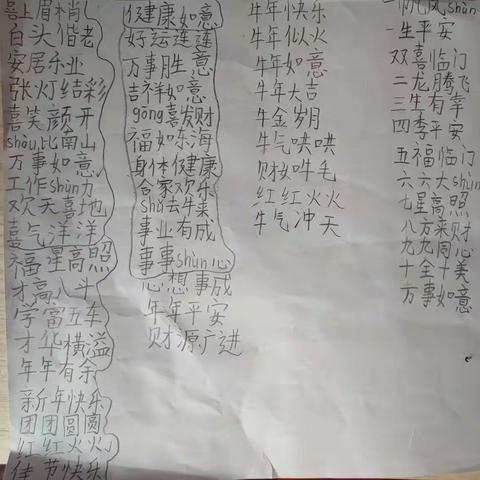 喜上眉梢
白头偕老
安居乐业
张灯结彩
喜笑颜开
shòu比南山
万事如意
工作shùn力
欢天喜地
喜气洋洋
福星高照
才高八斗
学富五车
才华横溢
年年有余
新年快乐
团团圆圆
红红火火
佳节快乐
健康如意
好运连连
万事胜意
吉祥如意
gōng喜发财
福如东海
身体健康
合家欢乐
shǔ去牛来
事业有成
事事shùn心
心想事成
年年平安
财源广进
牛年快乐
牛年似火
牛年如意
牛年大吉
牛金岁月
牛气哄哄
财如牛毛
红红火火
牛气冲天
一帆风shùn
一生平安
双喜临门
二龙腾飞
三生有幸
四季平安
五福临门
六六大shùn
七星高照
八方来财
九九同心
十全十美
万事如意